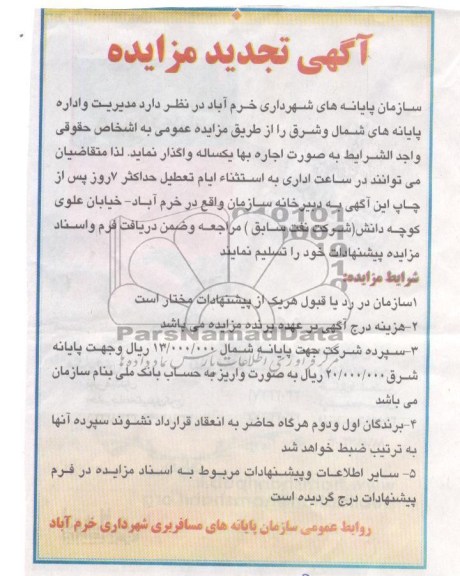 آگهی تجدید مزایده
سازمان پایانه های شهرداری خرم آباد در نظر دارد مدیریت واداره
پایانه های شمال وشرق را از طریق مزایده عمومی به اشخاص حقوقی
واجد الشرایط به صورت اجاره بها یکساله واگذار نماید. لذا متقاضیان
می توانند در ساعت اداری به استثناء ایام تعطیل حداکثر ۷روز پس از
چاپ این آگهی به دبیرخانه سازمان واقع در خرم آباد- خیابان علوی
کوچه دانش(شرکت نفت سابق ) مراجعه وضمن دریافت فرم واسناد
مزایده پیشنهادات خود را تسلیم نمایند
شرایط مزایده:
۱سازمان در رد یا قبول هریک از پیشنهادات مختار است
۲-هزینه درج آگهی بر عهده برنده مزایده می باشد
ParsNamadData
۳-سپرده شرکت جهت پایانه شمال ۱۳/۰۰۰/۰۰۰ ریال وجهت پایانه
شرق۲۰/۰۰۰/۰۰۰ ریال به صورت واریز به حساب بانک ملی بنام سازمان
می باشد
۴-برندگان اول ودوم هرگاه حاضر به انعقاد قرارداد نشوند سپرده آنها
به ترتیب ضبط خواهد شد
۵- سایر اطلاعات وپیشنهادات مربوط به اسناد مزایده در فرم
پیشنهادات درج گردیده است
روابط عمومی سازمان پایانه های مسافربری شهرداری خرم آباد